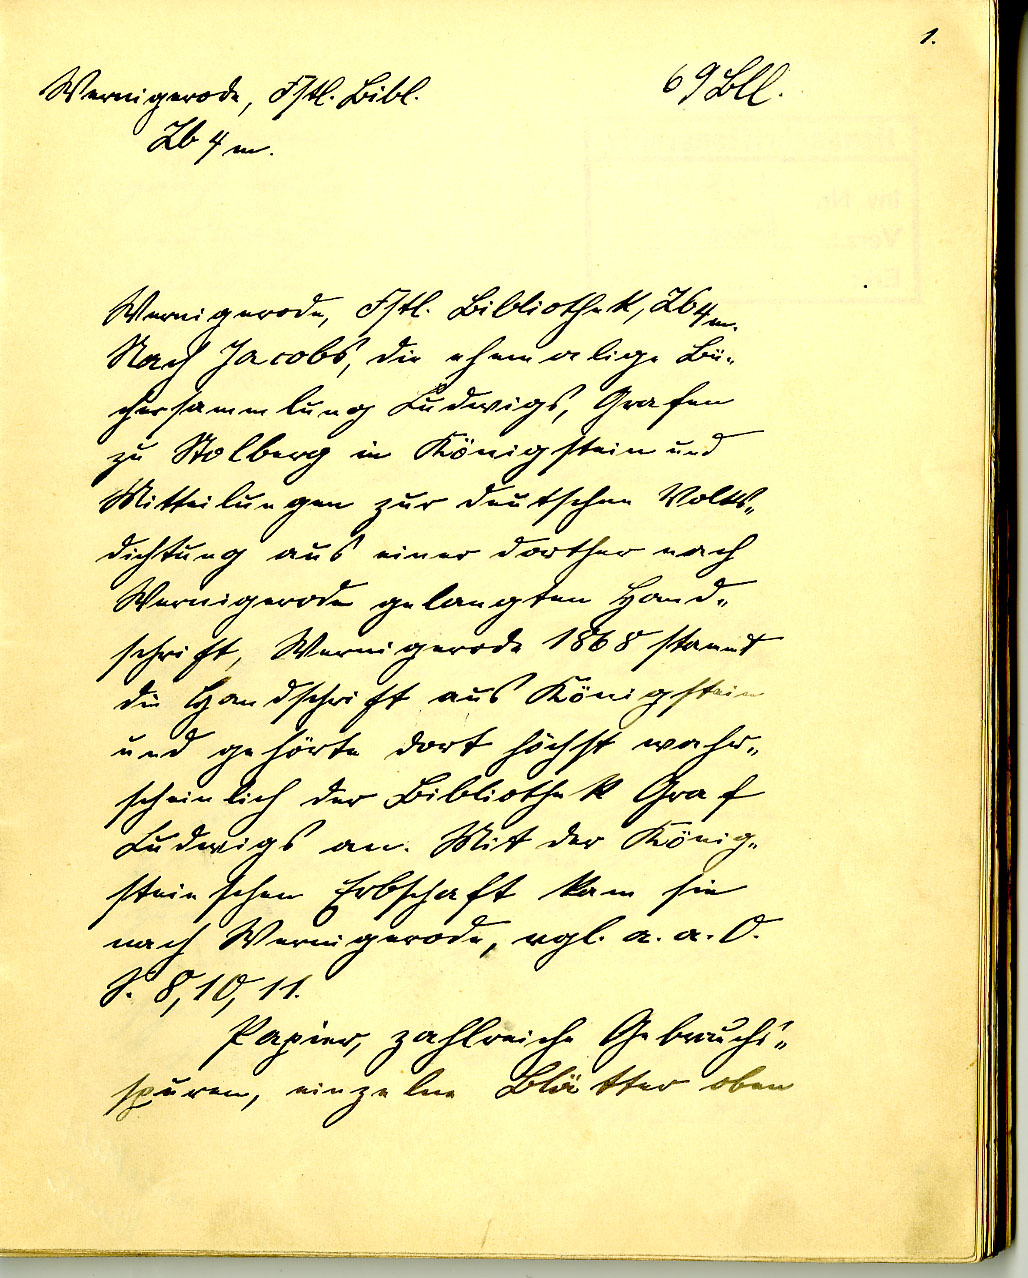 1.
Wernigerode, Fstl. Bibl. 69 Bll.
Zb 4 m.
Wernigerode, Fstl. Bibliothek, Zb 4 m.
Nach Jacobs, die ehemalige Bü-
chersammlung Ludwigs, Grafen
zu Stolberg in Königstein und
Mitteilungen zur deutschen Volks-
dichtung aus einer dorther nach
Wernigerode gelangten Hand-
schrift, Wernigerode 1868 stammt
die Handschrift aus Königstein
und gehörte dort höchst wahr-
scheinlich der Bibliothek Graf
Ludwigs an. Mit der König-
stein'schen Erbschaft kam sie
nach Wernigerode, vgl. a. a. O.
S. 8, 10, 11.
Papier, zahlreiche Gebrauchs-
spuren, einzelne Blätter oben